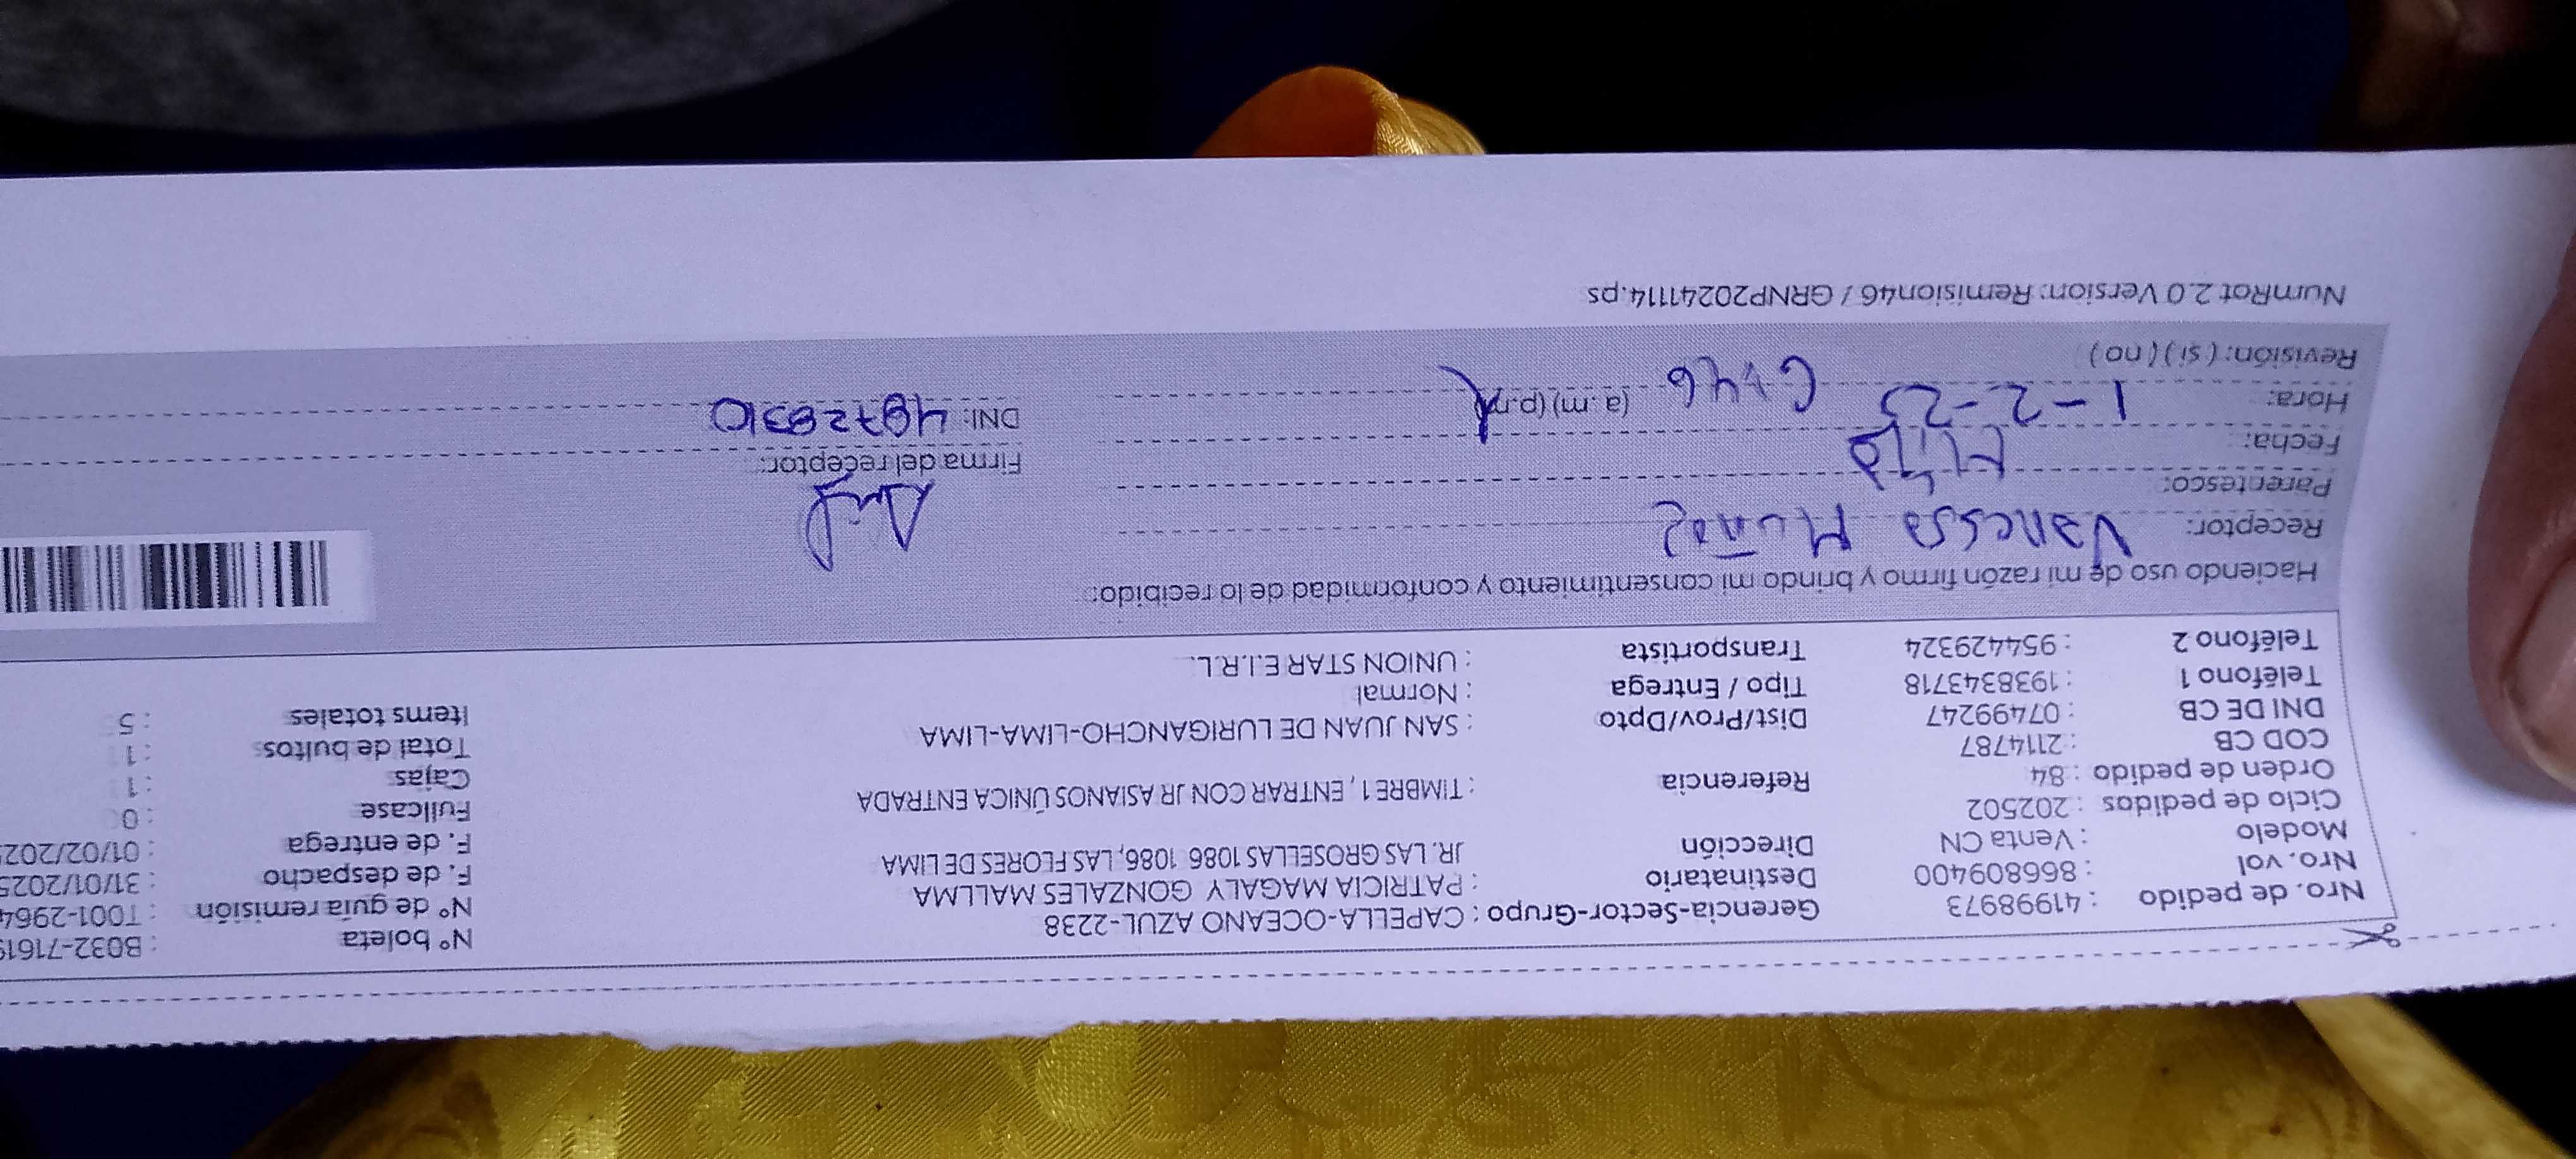 Nro. de pedido : 41998973 Gerencia-Sector-Grupo : CAPELLA-OCEANO AZUL-2238 N° boleta : B032-7161
Nro. vol : 866809400 Destinatario : PATRICIA MAGALY GONZALES MALLMA N° de guía remisión : T001-2964
Modelo : Venta CN Dirección JR. LAS GROSELLAS 1086 1086, LAS FLORES DE LIMA F. de despacho : 31/01/2025
Ciclo de pedidos : 202502 F. de entrega : 01/02/202
Orden de pedido : 84 Referencia : TIMBRE 1, ENTRAR CON JR ASIANOS ÚNICA ENTRADA Fullcase : 0
COD CB : 2114787 Cajas : 1
DNI DE CB : 07499247 Dist/Prov/Dpto : SAN JUAN DE LURIGANCHO-LIMA-LIMA Total de bultos : 1
Teléfono 1 : 1938343718 Tipo / Entrega : Normal Items totales : 5
Teléfono 2 : 954429324 Transportista : UNION STAR E.I.R.L.
Haciendo uso de mi razón firmo y brindo mi consentimiento y conformidad de lo recibido:
Receptor: Vanessa Muñoz
Parentesco: Firma del receptor:
Fecha: 1-2-25
Hora: (a.m) (p.m) DNI:
Revisión: (si) (no)
NumRot 2.0 Version: Remision46 / GRNP20241114.ps